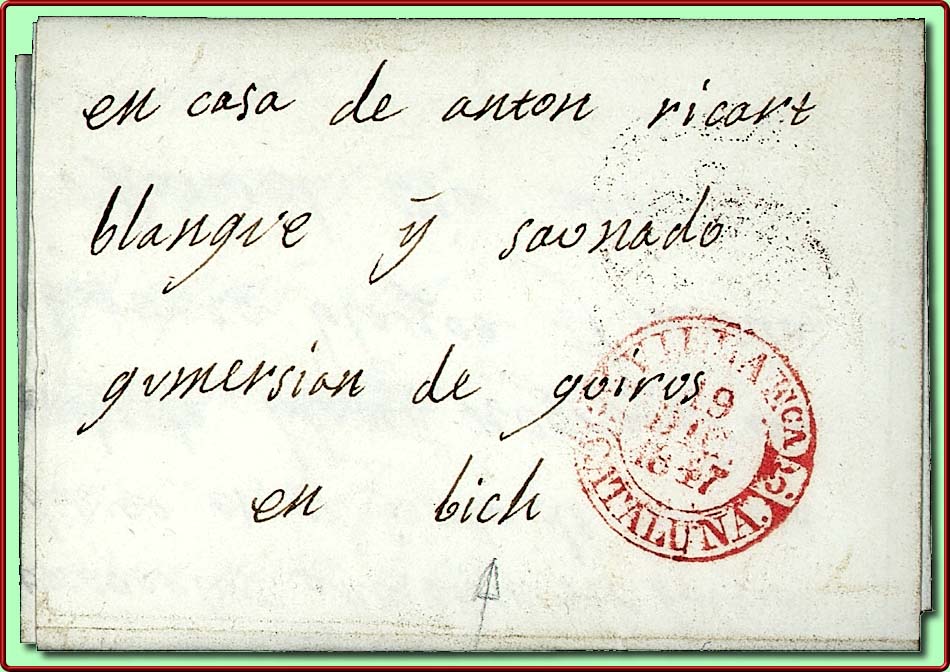 en casa de anton ricart
blangve ÿ saonado
gvmersion de qoiros
en bich
19
DIC
1847
CATALUÑA.